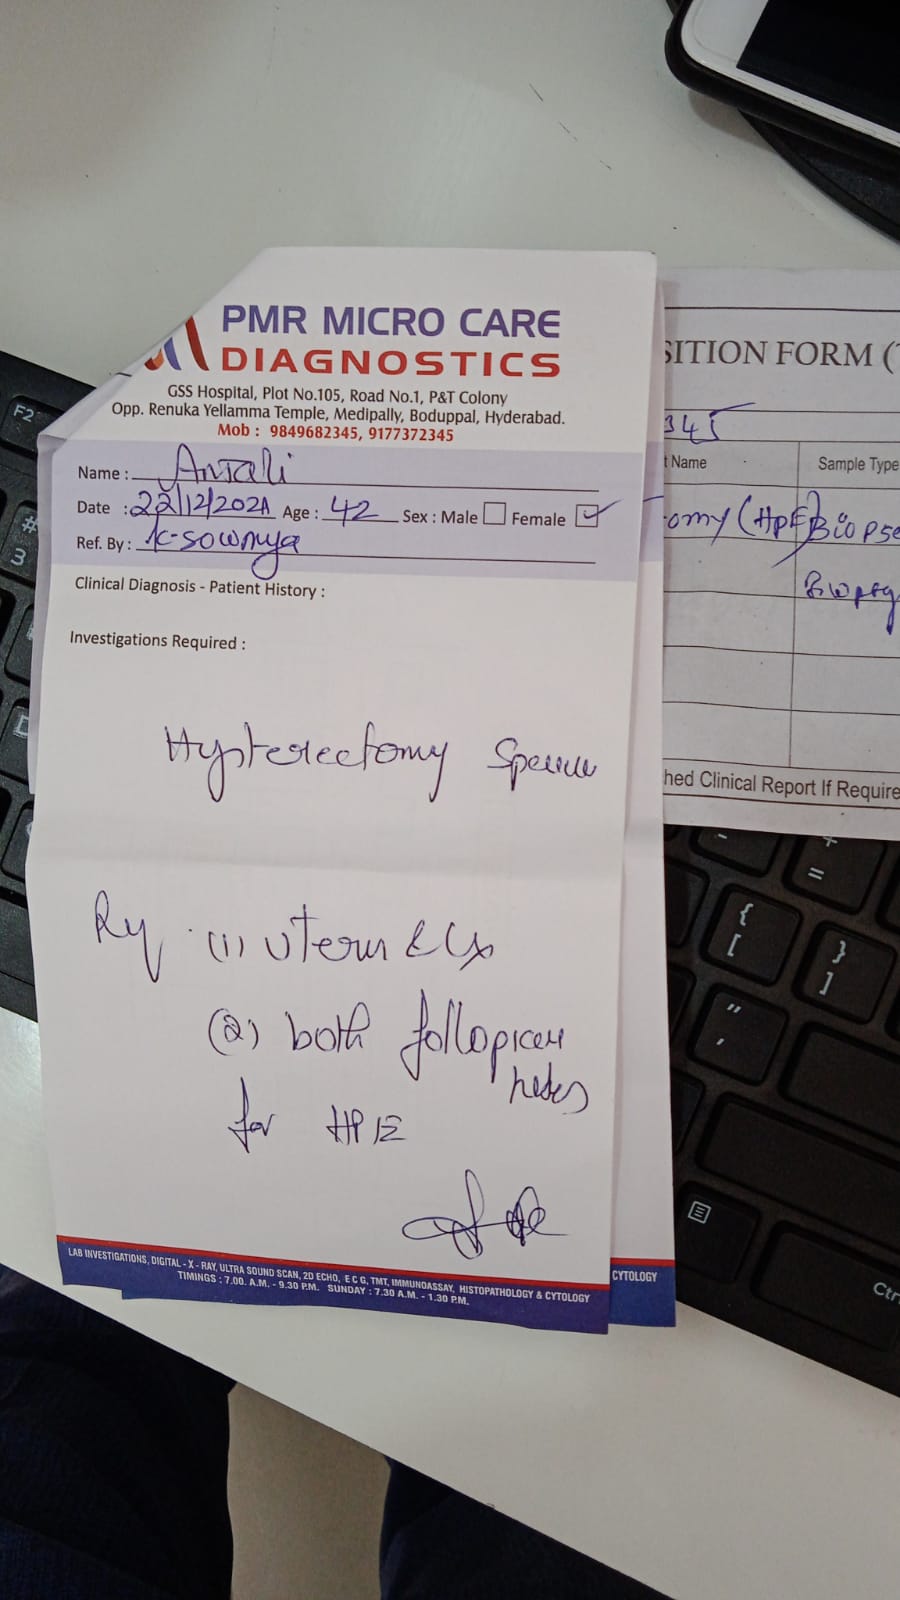 PMR MICRO CARE
DIAGNOSTICS
GSS Hospital, Plot No.105, Road No.1, P&T Colony
Opp. Renuka Yellamma Temple, Medipally, Boduppal, Hyderabad.
Mob : 9849682345, 9177372345
Name : Anjali
Date : 22/12/2021 Age : 42 Sex : Male Female ✓
Ref. By : K-Sowmya
Clinical Diagnosis - Patient History :
Investigations Required :
Hysterectomy
(1) & Cx
(2) both
for HPE
LAB INVESTIGATIONS, DIGITAL - X - RAY, ULTRA SOUND SCAN, 2D ECHO, E C G, TMT, IMMUNOASSAY, HISTOPATHOLOGY & CYTOLOGY
TIMINGS : 7.00. A.M. - 9.30 P.M. SUNDAY : 7.30 A.M. - 1.30 P.M.
CYTOLOGY
SITION FORM (
345
t Name Sample Type
omy (HPE)
Biopsy
hed Clinical Report If Require
F2
#
3
+
=
{
[
}
]
"
,
Ctr